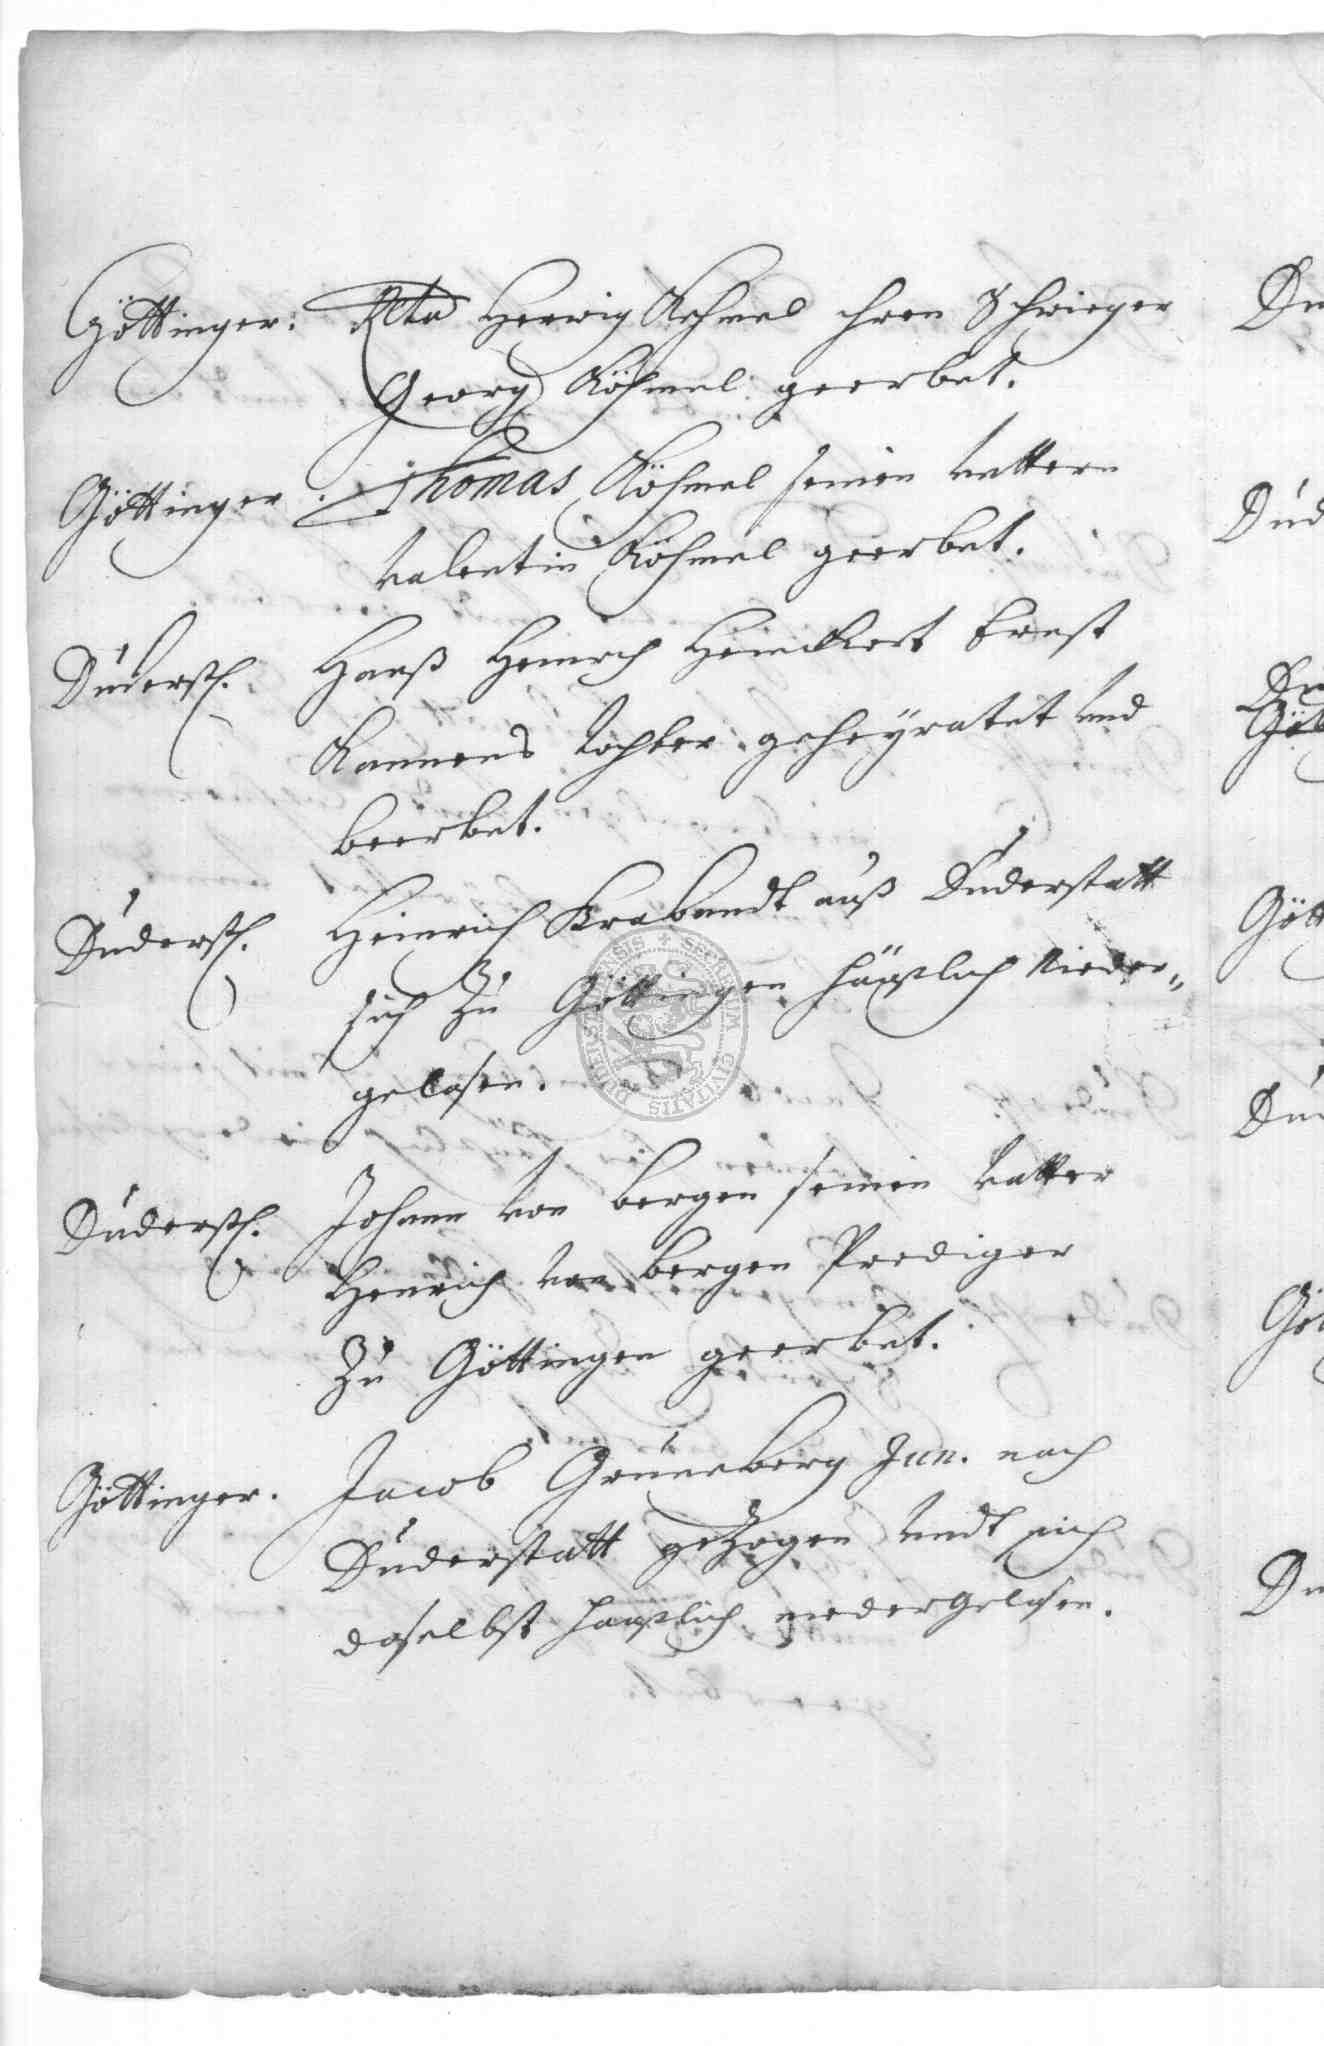 Göttinger: Relta Herwig Rehmel ihren Schwieger
Georg Röhmel geerbet.
Göttinger. Thomas Röhmel seinen Vettern
Valentin Röhmel geerbet.
Duderst. Hanß Heinrich Ernst
Kannens tochter geheyratet und
beerbet.
Duderst. Heinrich Brabandt auß Duderstatt
sich zu Göttingen häußlich nieder„
gelasen.
Duderst. Johann von bergen seinen Vatter
Henrich von bergen Prediger
zu Göttingen geerbet.
Göttinger. Jacob Gruneberg Jun. nach
Duderstatt gezogen undt sich
daselbst haußlich niedergelasen.
Dud
Gött
Gött
SIGILLUM CIVITATIS DUDERSTADENSIS